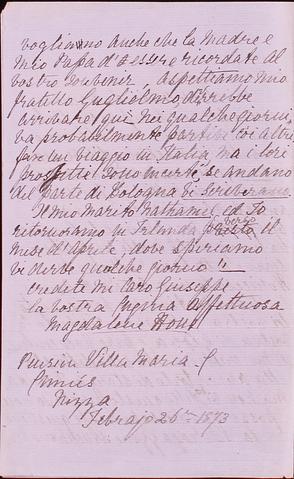 vogliamo anche che la Madre e
mio Papa d'essere ricordate al
vostro Souvenir. Aspettiamo mio
fratello Guglielmo, dirrebbe
arrivare qui nei qualche giorni,
va probabilmente partire coi altri
fan un viaggio in Italia, ma i lori
progetti sono incerte, se andano
del parte di Bologna vi scriveranno
Il mio marito Nathaniel, ed Io
ritorneramo in Irlanda presto verso il
mese d'Aprile, dove speriamo
vi vedre qualche giorno!!
credete mi Caro Giuseppe
la vostra Cugina Affettuosa
Magdalene
Pension Villa Maria
Cimies
Nizza
Febrajo 26 1873